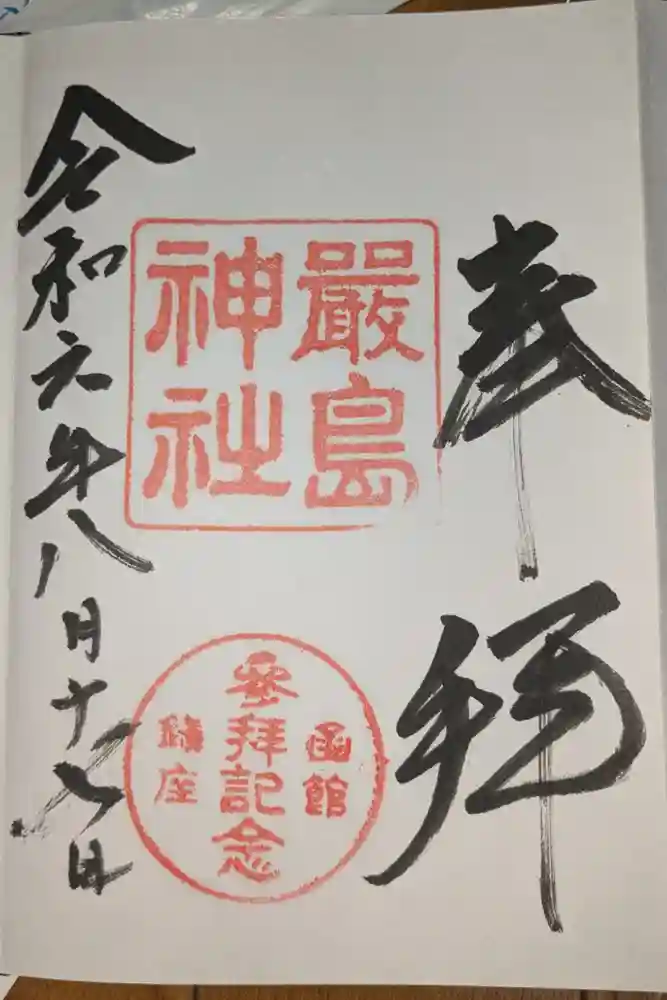 奉拝
嚴島
神社
函館
參拜記念
鎮座
令和六年八月十七日